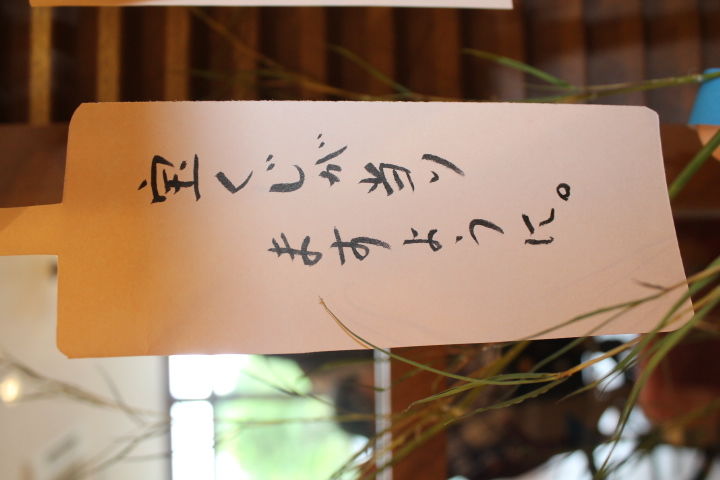 宝くじが当り
ますように。